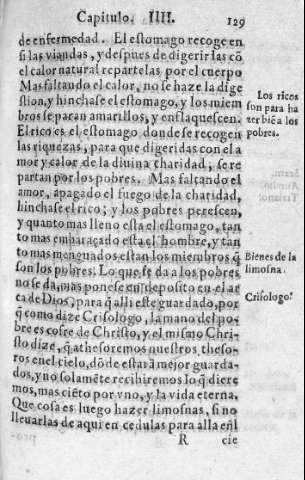 Capitulo. IIII. 129
de enfermedad. El estomago recoge en
si las viandas, y despues de digerir las cō
el calor natural repartelas por el cuerpo
Mas faltando el calor, no se haze la dige
stion, y hinchase el estomago, y los miem
bros se paran amarillos, y enflaquescen.
El rico es el estomago donde se recogen
las riquezas, para que digeridas con el a
mor y calor de la diuina charidad, se re
partan por los pobres. Mas faltando el
amor, apagado el fuego de la charidad,
hinchase el rico; y los pobres perescen,
y quanto mas lleno esta el estomago, tan
to mas embaraçado esta el hombre, y tan
to mas menguados estan los miembros q̄
son los pobres. Lo que se da a los pobres
no se da, mas ponese en deposito en el ar
ca de Dios, para q̄ alli este guardado, por
q̄ como dize Crisologo, la mano del po
bre es cofre de Christo, y el mismo Chri
sto dize, q̄ athesoremos nuestros theso-
ros en el cielo, dōde estarā mejor guarda-
dos, y no solamēte recibiremos lo q̄ diere
mos, mas ciēto por vno, y la vida eterna.
Que cosa es luego hazer limosnas, si no
lleuarlas de aqui en cedulas para alla en l
R cie
Los ricos
son para ha
zer biē a los
pobres.
Bienes de la
limosna.
Crisologo.